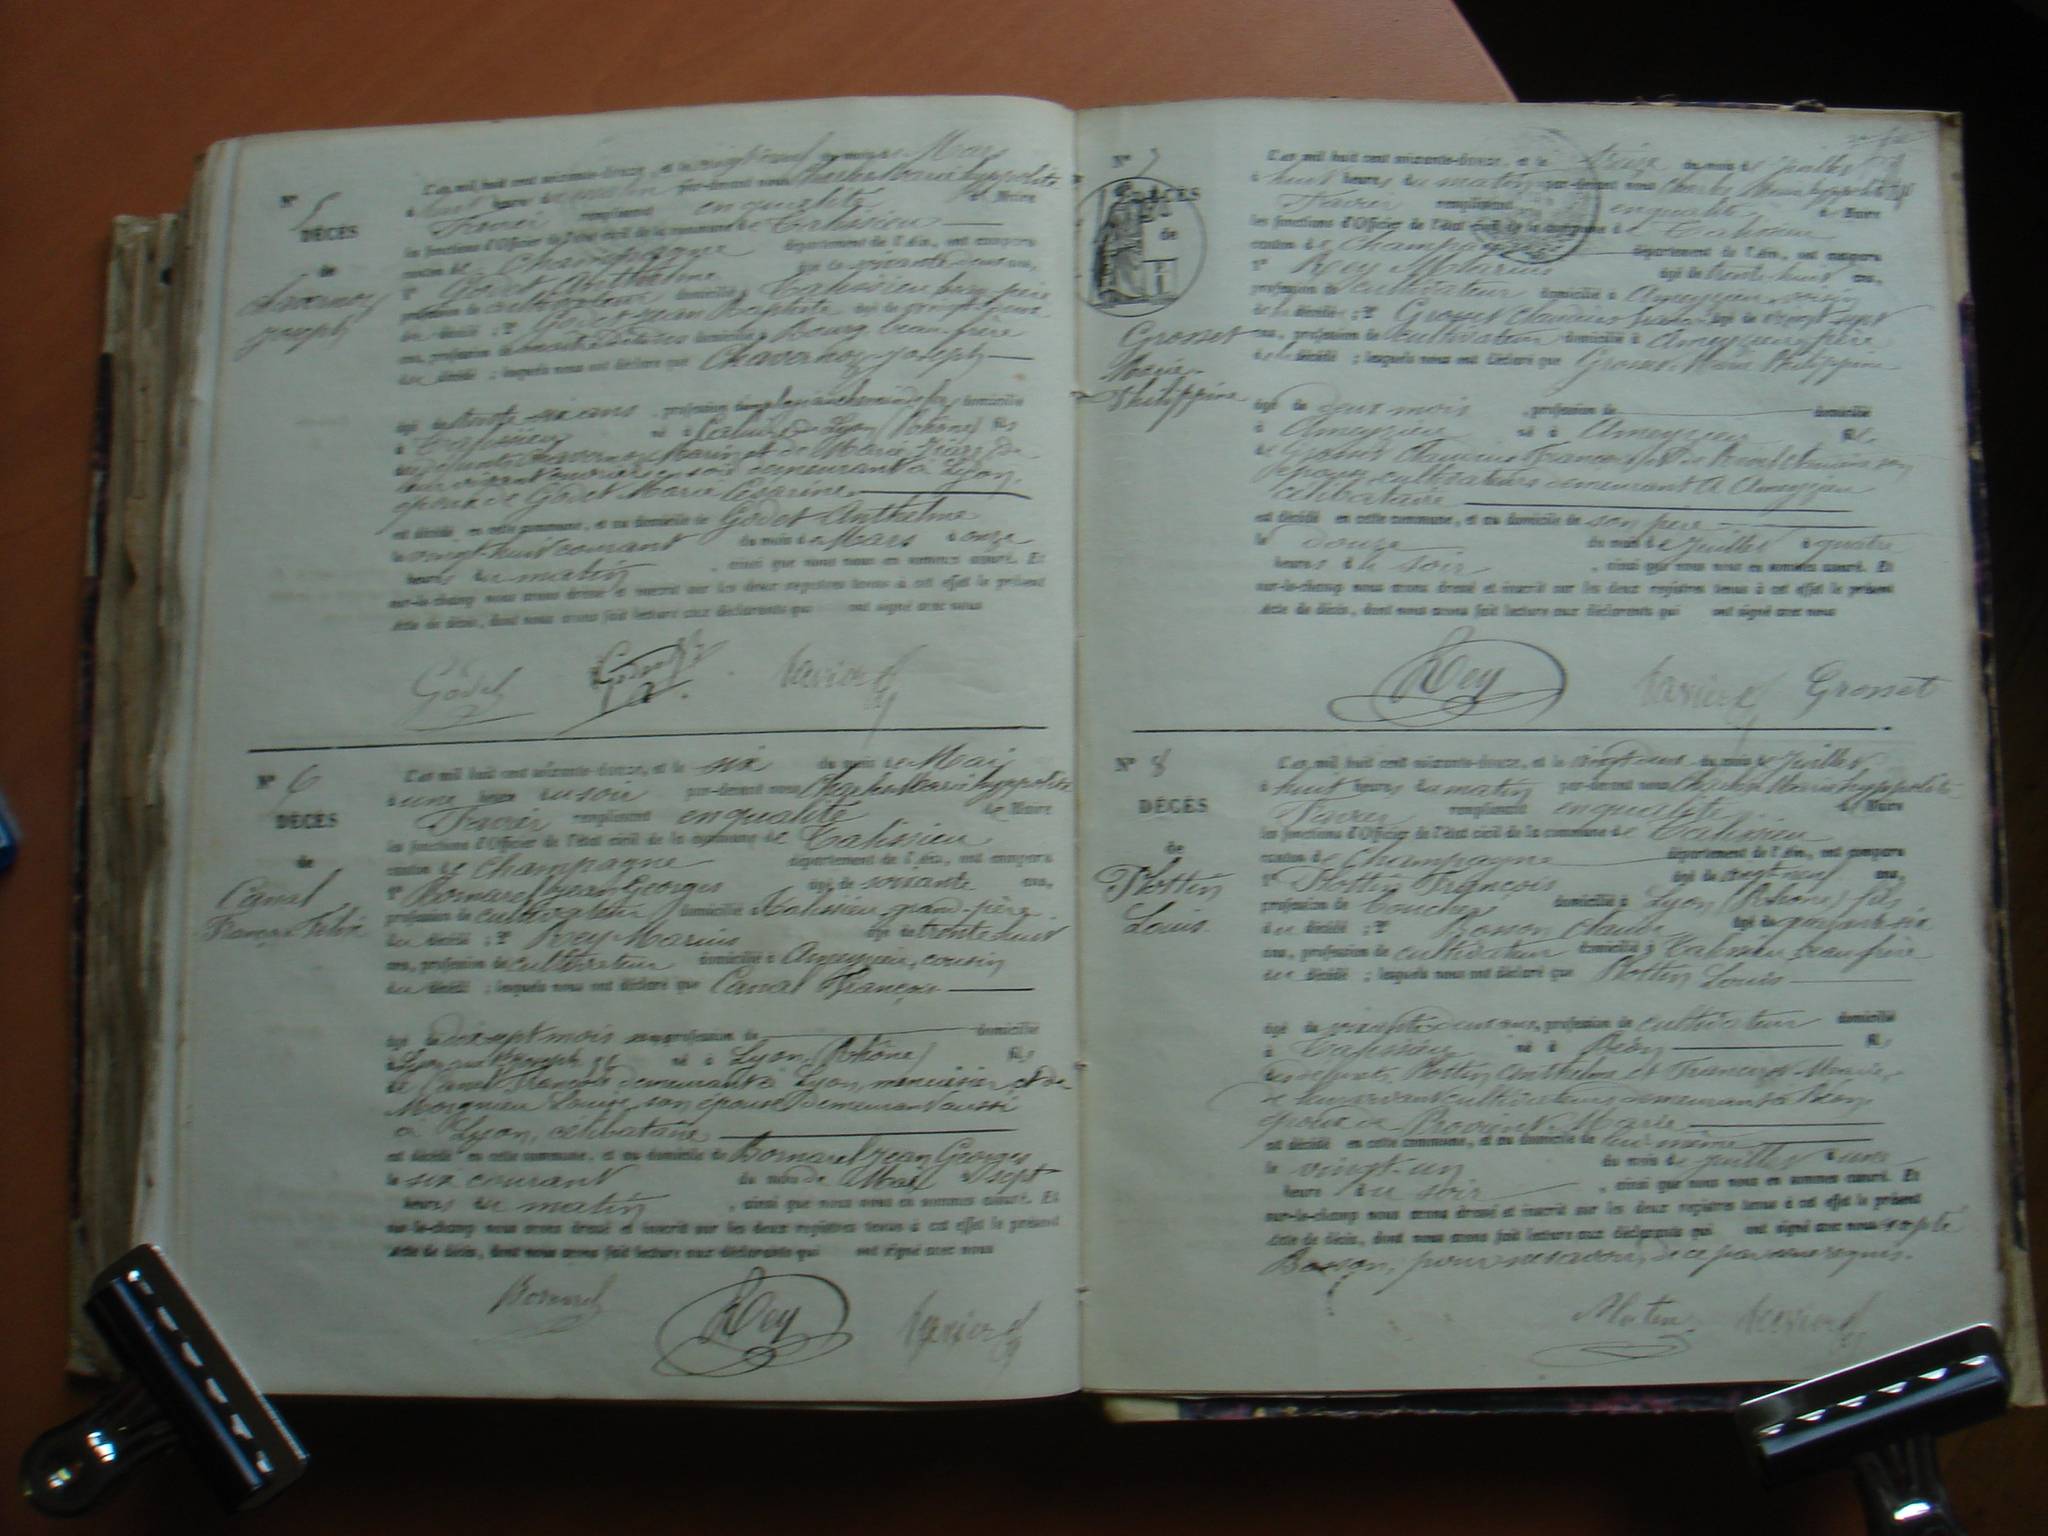 N° 5
DÉCÈS
de
Chavernoz
Joseph
L'an mil huit cent soixante-douze, et le vingt neuf du mois de Mars
à huit heures du matin par-devant nous Charles Marie hyppolite
Favier remplissant en qualité de Maire
les fonctions d'Officier de l'état civil de la commune de Talissieu
canton de Champagne département de l'Ain, ont comparu
1° Godet Anthelme âgé de soixante deux ans,
profession de cultivateur domicilié à Talissieu beau père
du décédé ; 2° Godet Jean Baptiste âgé de
ans, profession de domicilié à Bourg beau-frère
du décédé ; lesquels nous ont déclaré que Chavernoz Joseph
âgé de trente six ans, profession d'employé au chemin de fer, domicilié
à Talissieu né à Lyon (Rhône) fils
de Chavernoz et de Marie
vivant demeurant à Lyon,
époux de Godet Marie Césarine
est décédé en cette commune, et au domicile de Godet Anthelme
le vingt-huit courant du mois de Mars à onze
heures du matin, ainsi que nous nous en sommes assuré. Et
sur-le-champ nous avons dressé et inscrit sur les deux registres tenus à cet effet le présent
Acte de décès, dont nous avons fait lecture aux déclarants qui ont signé avec nous
Godet Favier
N° 6
DÉCÈS
de
Canal
François Félix
L'an mil huit cent soixante-douze, et le six du mois de Mai
à une heure du soir par-devant nous Charles Marie hyppolite
Favier remplissant en qualité de Maire
les fonctions d'Officier de l'état civil de la commune de Talissieu
canton de Champagne département de l'Ain, ont comparu
1° Bornarel Jean Georges âgé de soixante ans,
profession de cultivateur domicilié à Talissieu grand-père
du décédé ; 2° Rey Marius âgé de trente huit
ans, profession de cultivateur domicilié à Ameyzieu, cousin
du décédé ; lesquels nous ont déclaré que Canal François
âgé de dix sept mois, profession de domicilié
à Lyon né à Lyon, (Rhône) fils
de Canal François demeurant à Lyon, menuisier et de
Louise, son épouse demeurant aussi
à Lyon, célibataire
est décédé en cette commune, et au domicile de Bornarel Jean Georges
le six courant du mois de Mai à sept
heures du matin, ainsi que nous nous en sommes assuré. Et
sur-le-champ nous avons dressé et inscrit sur les deux registres tenus à cet effet le présent
Acte de décès, dont nous avons fait lecture aux déclarants qui ont signé avec nous
Bornarel Rey Favier
N° 7
DÉCÈS
de
Grosset
Marie
Philippine
L'an mil huit cent soixante-douze, et le treize du mois de Juillet
à huit heures du matin par-devant nous Charles Marie hyppolite
Favier remplissant en qualité de Maire
les fonctions d'Officier de l'état civil de la commune de Talissieu
canton de Champagne département de l'Ain, ont comparu
1° Rey Marius âgé de trente huit ans,
profession de cultivateur domicilié à Ameyzieu, voisin
de la décédée ; 2° Grosset Claudius âgé de vingt sept
ans, profession de cultivateur domicilié à Ameyzieu, père
de la décédée ; lesquels nous ont déclaré que Grosset Marie Philippine
âgé de deux mois, profession de domicilié
à Ameyzieu né à Ameyzieu fille
de Grosset Claudius François et de son
épouse, cultivateurs demeurant à Ameyzieu
célibataire
est décédé en cette commune, et au domicile de son père
le douze du mois de Juillet à quatre
heures de soir, ainsi que nous nous en sommes assuré. Et
sur-le-champ nous avons dressé et inscrit sur les deux registres tenus à cet effet le présent
Acte de décès, dont nous avons fait lecture aux déclarants qui ont signé avec nous
Rey Favier Grosset
N° 8
DÉCÈS
de
Plottin
Louis
L'an mil huit cent soixante-douze, et le vingt deux du mois de Juillet
à huit heures du matin par-devant nous Charles Marie hyppolite
Favier remplissant en qualité de Maire
les fonctions d'Officier de l'état civil de la commune de Talissieu
canton de Champagne département de l'Ain, ont comparu
1° Plottin François âgé de vingt neuf ans,
profession de domicilié à Lyon (Rhône) fils
du décédé ; 2° Bosson Claude âgé de quarante six
ans, profession de cultivateur domicilié à Talissieu, beau frère
du décédé ; lesquels nous ont déclaré que Plottin Louis
âgé de soixante deux ans, profession de cultivateur domicilié
à Talissieu né à Béon fils
des défunts Plottin Anthelme et Marie,
de leur vivant cultivateurs demeurant à Béon
époux de Marie
est décédé en cette commune, et au domicile de lui même
le vingt-un du mois de Juillet à une
heure du soir, ainsi que nous nous en sommes assuré. Et
sur-le-champ nous avons dressé et inscrit sur les deux registres tenus à cet effet le présent
Acte de décès, dont nous avons fait lecture aux déclarants qui ont signé avec nous excepté
Bosson, pour ne savoir, de ce par nous requis.
Plotin Favier